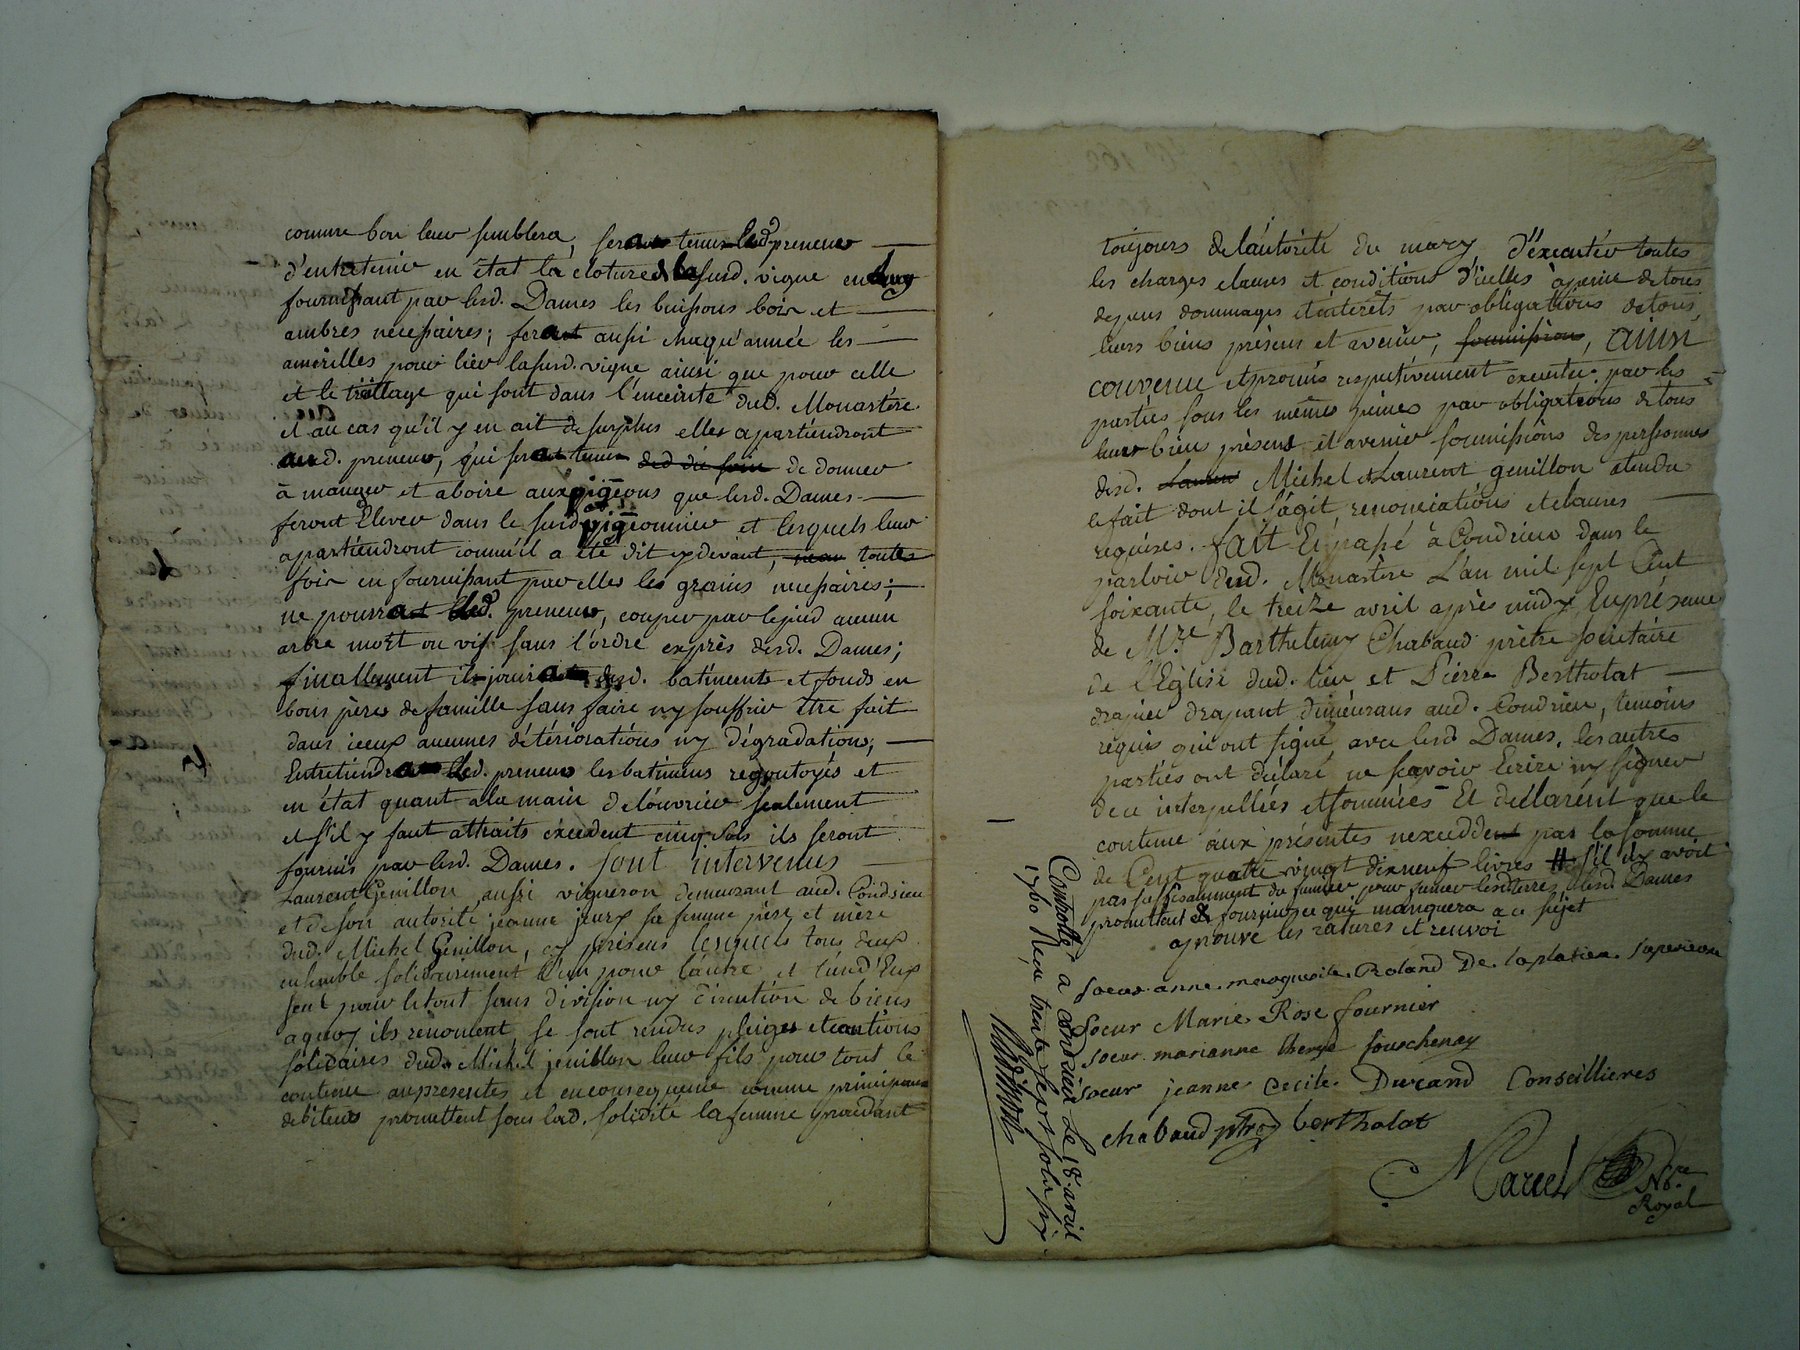 comme bon leur semblera, sera tenu led preneur
d'entretenir en état la cloture de la susd. vigne en luy
fournissant par lesd. Dames les buissons bois et
ambres necessaires; sera aussi chaqu'année les
amerilles pour lier lasusd. vigne ainsi que pour celle
et le treillage qui sont dans l'enceinte dud. Monastère
et au cas qu'il y en ait de surplus elles apartiendront
aud. preneur, qui sera tenu de donner
à manger et aboire aux pigeons que lesd. Dames
feront Elever dans le susd pigeonnier et lesquels leur
apartiendront comme il a été dit cydevant, toutes
fois en fournissant par elles les grains necessaires;
ne pourra led. preneur, couper par lepied aucun
arbre mort ou vif sans l'ordre exprès desd. Dames;
finallement il jouira desd. batiments et fonds en
bons père de famille sans faire ny souffrir être fait
dans iceux aucunes détériorations ny dégradations;
Entretiendra led. preneur les batimens regoutoyés et
en état quant ala main de l'ouvrier seulement
et s'il y faut attraits excedent cinq sols ils seront
fournis par lesd. Dames. sont intervenus
Laurent Genillon aussi vigneron demeurant aud. Condrieu
et de son autorité jeanne jeury sa femme père et mère
dud. Michel Genillon, cy présens lesquels tous deux
ensemble solidairement l'un pour l'autre et l'und'Eux
seul pour letout sans division ny discution de biens
aquoy ils renoncent, se sont rendus pleiges et cautions
solidaires dud. Michel jenillon leur fils pour tout le
contenu auxpresentes et enconsequence comme principaux
debiteurs promettent sous lad. solidité lafemme procédant
toujours de l'autorité du mary d'éxecuter toutes
les charges clauses et conditions d'icelles à peine de tous
depens dommages et interets par obligations de tous
leurs biens présens et avenir, soumissions, ainsi
convenu et promis respectivement executer par les
parties sous les mêmes peines par obligations de tous
leurs biens présens et avenir soumissions des personnes
desd. Laurent Michel et Laurent genillon atendu
le fait dont il s'agit renonciations et clauses
requises. fait Et passé à Condrieu dans le
parloir dud. Monastère L'an mil sept Cent
soixante, le treize avril après midy, En présence
de M.re Barthelemy Chabaud prêtre sociétaire
de l'Eglise dud. lieu et Pierre Bertholat
drapier drapant demeurans aud. Condrieu, temoins
requis qui ont signé avec lesd Dames, les autres
parties ont déclaré ne scavoir Ecrire ny signer
de ce interpellés et sommées Et déclarent que le
contenu aux présentes nexcedde pas la somme
de Cent quatre vingt dixneuf livres # s'il n'y avoit
pas suffisamment du fumier pour fumer lesd terres, lesd Dames
promettent de fournir ce qui manquera a ce sujet
aprouvé les ratures et renvoi
soeur anne. marguerite. Roland De. laplatiere. superieure
Soeur Marie Rose fournier
soeur marianne therese souchenay
soeur jeanne Cecile. Durand Conseilleres
chabaud ptre bertholat
Marcel N.re
Royal
Controllé a Condrieu Le 18 avril
1760 Reçu trente sept sols six